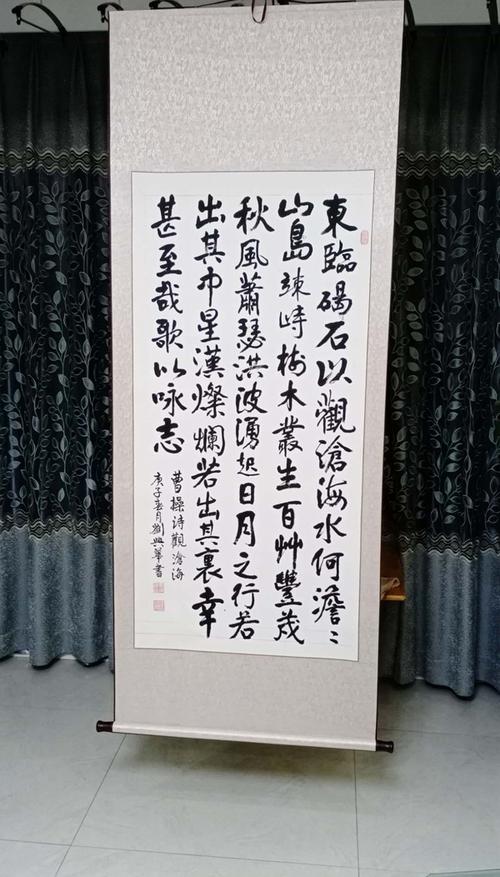 東臨碣石以觀滄海水何澹〻
山島竦峙樹木叢生百艸豐茂
秋風蕭瑟洪波湧起日月之行若
出其中星漢燦爛若出其裏幸
甚至哉歌以咏志
曹操詩觀滄海
庚子春月劉興華書